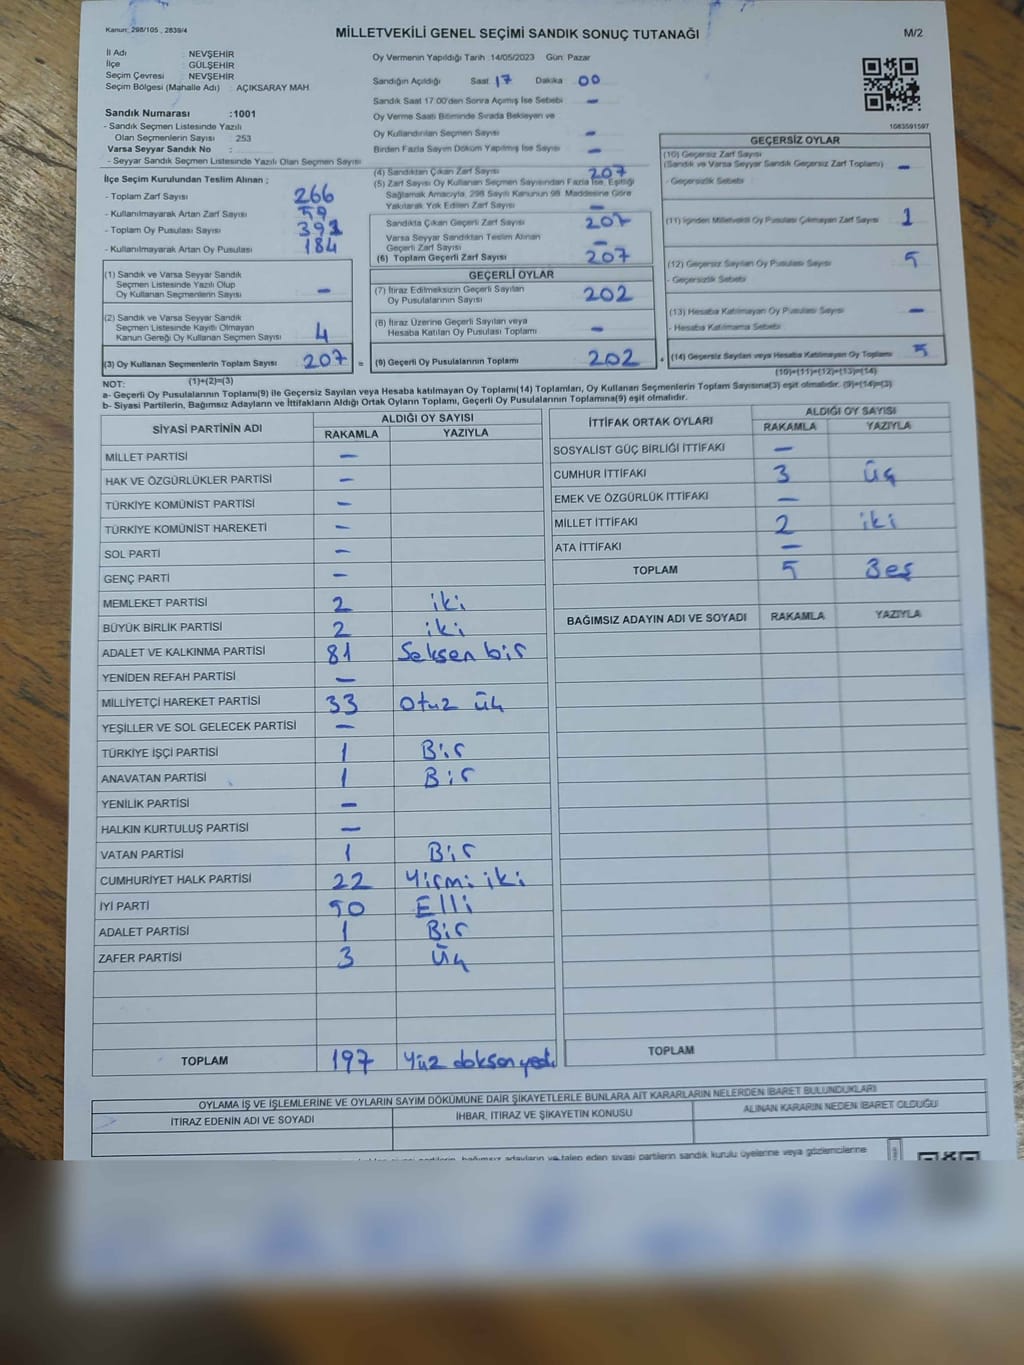 Kanun: 298/105 , 2839/4
MİLLETVEKİLİ GENEL SEÇİMİ SANDIK SONUÇ TUTANAĞI
M/2
İl Adı NEVŞEHİR
İlçe GÜLŞEHİR
Seçim Çevresi NEVŞEHİR
Seçim Bölgesi (Mahalle Adı) : AÇIKSARAY MAH.
Sandık Numarası :1001
- Sandık Seçmen Listesinde Yazılı
Olan Seçmenlerin Sayısı : 253
Varsa Seyyar Sandık No :
- Seyyar Sandık Seçmen Listesinde Yazılı Olan Seçmen Sayısı
İlçe Seçim Kurulundan Teslim Alınan ;
- Toplam Zarf Sayısı 266
- Kullanılmayarak Artan Zarf Sayısı 59
- Toplam Oy Pusulası Sayısı 391
- Kullanılmayarak Artan Oy Pusulası 184
(1) Sandık ve Varsa Seyyar Sandık
Seçmen Listesinde Yazılı Olup
Oy Kullanan Seçmenlerin Sayısı –
(2) Sandık ve Varsa Seyyar Sandık
Seçmen Listesinde Kayıtlı Olmayan
Kanun Gereği Oy Kullanan Seçmen Sayısı 4
(3) Oy Kullanan Seçmenlerin Toplam Sayısı 207 =
(1)+(2)=(3)
Oy Vermenin Yapıldığı Tarih :14/05/2023 Gün: Pazar
Sandığın Açıldığı Saat 17 Dakika 00
Sandık Saat 17.00'den Sonra Açımış İse Sebebi –
Oy Verme Saati Bitiminde Sırada Bekleyen ve
Oy Kullandırılan Seçmen Sayısı –
Birden Fazla Sayım Döküm Yapılmış İse Sayısı –
(4) Sandıktan Çıkan Zarf Sayısı 207
(5) Zarf Sayısı Oy Kullanan Seçmen Sayısından Fazla İse, Eşitliği
Sağlamak Amacıyla, 298 Sayılı Kanunun 98. Maddesine Göre
Yakılarak Yok Edilen Zarf Sayısı –
Sandıkta Çıkan Geçerli Zarf Sayısı 207
Varsa Seyyar Sandıktan Teslim Alınan
Geçerli Zarf Sayısı –
(6) Toplam Geçerli Zarf Sayısı 207
GEÇERLİ OYLAR
(7) İtiraz Edilmeksizin Geçerli Sayılan
Oy Pusulalarının Sayısı 202
(8) İtiraz Üzerine Geçerli Sayılan veya
Hesaba Katılan Oy Pusulası Toplamı –
(9) Geçerli Oy Pusulalarının Toplamı 202 +
1083591597
GEÇERSİZ OYLAR
(10) Geçersiz Zarf Sayısı
(Sandık ve Varsa Seyyar Sandık Geçersiz Zarf Toplamı) –
- Geçersizlik Sebebi
(11) İçinden Milletvekili Oy Pusulası Çıkmayan Zarf Sayısı 1
(12) Geçersiz Sayılan Oy Pusulası Sayısı 5
- Geçersizlik Sebebi
(13) Hesaba Katılmayan Oy Pusulası Sayısı –
- Hesaba Katılmama Sebebi
(14) Geçersiz Sayılan veya Hesaba Katılmayan Oy Toplamı 5
(10)+(11)+(12)+(13)=(14)
NOT:
a- Geçerli Oy Pusulalarının Toplamı(9) ile Geçersiz Sayılan veya Hesaba katılmayan Oy Toplamı(14) Toplamları, Oy Kullanan Seçmenlerin Toplam Sayısına(3) eşit olmalıdır. (9)+(14)=(3)
b- Siyasi Partilerin, Bağımsız Adayların ve İttifakların Aldığı Ortak Oyların Toplamı, Geçerli Oy Pusulalarının Toplamına(9) eşit olmalıdır.
SİYASİ PARTİNİN ADI ALDIĞI OY SAYISI
RAKAMLA YAZIYLA
MİLLET PARTİSİ –
HAK VE ÖZGÜRLÜKLER PARTİSİ –
TÜRKİYE KOMÜNİST PARTİSİ –
TÜRKİYE KOMÜNİST HAREKETİ –
SOL PARTİ –
GENÇ PARTİ –
MEMLEKET PARTİSİ 2 iki
BÜYÜK BİRLİK PARTİSİ 2 iki
ADALET VE KALKINMA PARTİSİ 81 Seksen bir
YENİDEN REFAH PARTİSİ –
MİLLİYETÇİ HAREKET PARTİSİ 33 Otuz üç
YEŞİLLER VE SOL GELECEK PARTİSİ –
TÜRKİYE İŞÇİ PARTİSİ 1 Bir
ANAVATAN PARTİSİ 1 Bir
YENİLİK PARTİSİ –
HALKIN KURTULUŞ PARTİSİ –
VATAN PARTİSİ 1 Bir
CUMHURİYET HALK PARTİSİ 22 Yirmi iki
İYİ PARTİ 50 Elli
ADALET PARTİSİ 1 Bir
ZAFER PARTİSİ 3 Üç
TOPLAM 197 Yüz doksan yedi
İTTİFAK ORTAK OYLARI ALDIĞI OY SAYISI
RAKAMLA YAZIYLA
SOSYALİST GÜÇ BİRLİĞİ İTTİFAKI –
CUMHUR İTTİFAKI 3 üç
EMEK VE ÖZGÜRLÜK İTTİFAKI –
MİLLET İTTİFAKI 2 iki
ATA İTTİFAKI –
TOPLAM 5 Beş
BAĞIMSIZ ADAYIN ADI VE SOYADI RAKAMLA YAZIYLA
TOPLAM
OYLAMA İŞ VE İŞLEMLERİNE VE OYLARIN SAYIM DÖKÜMÜNE DAİR ŞİKAYETLERLE BUNLARA AİT KARARLARIN NELERDEN İBARET BULUNDUKLARI
İTİRAZ EDENİN ADI VE SOYADI İHBAR, İTİRAZ VE ŞİKAYETİN KONUSU ALINAN KARARIN NEDEN İBARET OLDUĞU
siyasi partilerin, bağımsız adayların ve talep eden siyasi partilerin sandık kurulu üyelerine veya gözlemcilerine